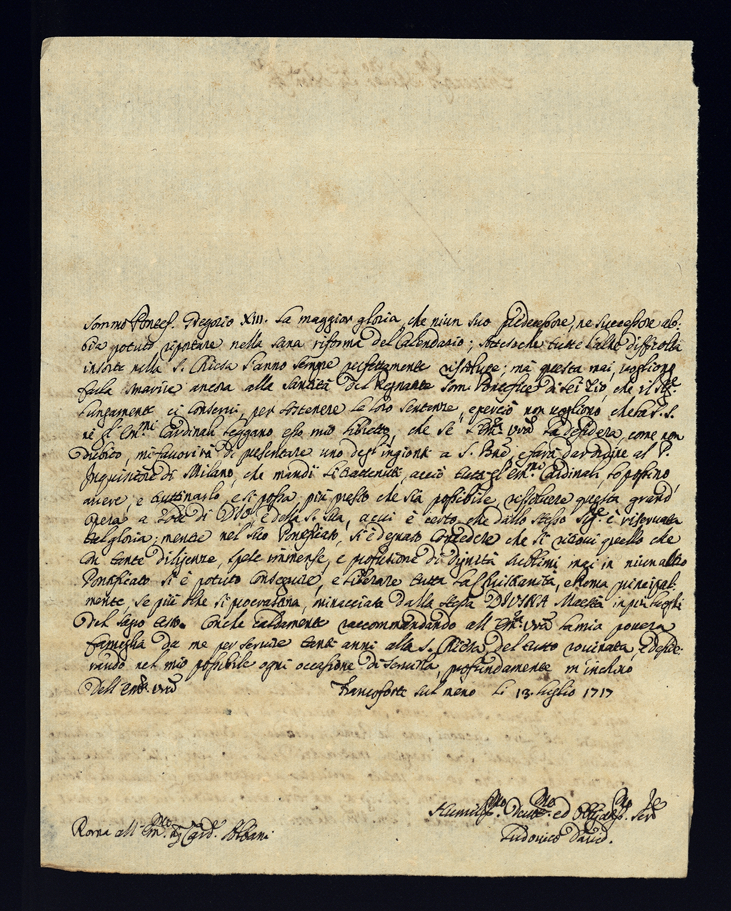 Sommo Pontef. Gregorio XIII. La maggior gloria, che niun suo predecessore, ne successore ab-
bia potuto riportare nella sana riforma del Calendario; attesoche tutte l'altre difficoltà
insorte nella S. Chiesa s'anno sempre perfettamente risolute; mà questa mai, vogliono
farla smarire ancora alla Santità del Regnante Som. Pontefice di sei Zio, che il
lungamente ci conservi, per sostenere la loro sentenze, e perciò non vogliono che la S. S.
ne gl'Em.mi Cardinali leggano esso mio libretto, che se l'Em.za V.ra la desidera, come non
dubito, mi favorirà di presentare uno degl'ingionti a S. Bne, e farà dar ordine al P.
Inquisitore di Milano, che mandi li trattenuti, acciò tutti gl'Em.mi Cardinali lo possino
avere, e ruttinarlo, e si possa più presto che sia possibile, restituere questa grand'
opera a di Dio, e della S. Sua, a cui è certo che dallo stesso Sig.re è riservata
tal gloria; mentre nel suo Ponteficato, si è degnato concedere che si ritrovi quello che
con tante diligenze, spese immense, e profusione di dignità mai in niun altro
Pontificato si è potuto conseguire, e liberare tutta la Christianità, e Roma principal-
mente, se più che si procrastina, minacciata dalla stessa DIVINA Maestà
del Con che caldamente raccommandando all'Em.za V.ra la mia povera
famiglia da me per servire tanti anni alla S. Chiesa del tutto rovinata, e deside-
rando nel mio possibile ogni occasione di servirla, profundamente m'inchino
Dell'Em.za V.ra Francoforte sul meno li 13 luglio 1717
Humiliss.mo Devot.mo ed Obligatiss.mo Se.re
Ludovico David.
Roma all'Em.mo Sig. Card. Albani